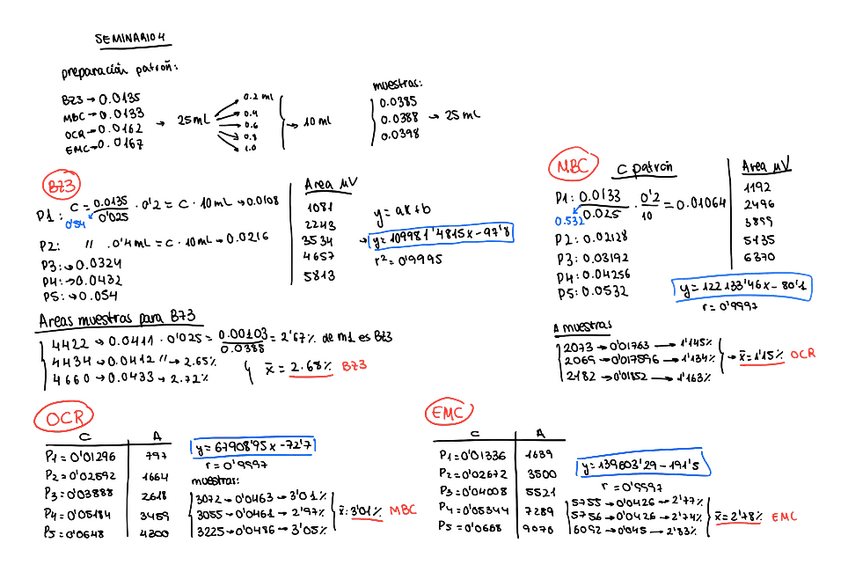 SEMINARIO 4
preparación patrón:
BZ3 → 0.0135
MBC → 0.0133
OCR → 0.0162
EMC → 0.0167
→ 25 mL
0.2 mL
0.4
0.6
0.8
1.0
→ 10 mL
muestras:
0.0385
0.0388 → 25 mL
0.0398
BZ3
P1: C = 0.0135 / 0'025 · 0'2 = C · 10 mL → 0.0108
0'54
P2: " · 0'4 mL = C · 10 mL → 0.0216
P3: → 0.0324
P4: → 0.0432
P5: → 0.054
Area μV
1081
2243
3534
4657
5813
y = ax + b
→ y = 109981'4815x - 97'8
r² = 0'9995
Areas muestras para BZ3
4422 → 0.0411 · 0'025 = 0.00103 / 0.0388 = 2'67% de m1 es BZ3
4434 → 0.0412 " → 2.65%
4660 → 0.0433 → 2.72%
x̄ = 2.68% BZ3
MBC
C patrón
P1: 0.0133 / 0.025 · 0'2 / 10 = 0.01064
0.532
P2: 0.02128
P3: 0.03192
P4: 0.04256
P5: 0.0532
Area μV
1192
2496
3899
5135
6370
y = 122133'46x - 80'1
r = 0'9997
A muestras
2073 → 0'01763 → 1'145%
2069 → 0'017596 → 1'134%
2182 → 0'01852 → 1'163%
→ x̄ = 1'15% OCR
OCR
C A
P1 = 0'01296 797
P2 = 0'02592 1664
P3 = 0'03888 2618
P4 = 0'05184 3459
P5 = 0'0648 4300
y = 67908'95x - 72'7
r = 0'9997
muestras:
3072 → 0'0463 → 3'01%
3055 → 0'0461 → 2'97%
3225 → 0'0486 → 3'05%
x̄: 3'01% MBC
EMC
C A
P1 = 0'01336 1639
P2 = 0'02672 3500
P3 = 0'04008 5521
P4 = 0'05344 7289
P5 = 0'0668 9076
y = 139603'29 - 191'5
r = 0'9997
5755 → 0'0426 → 2'77%
5756 → 0'0426 → 2'74%
6092 → 0'045 → 2'83%
x̄ = 2'78% EMC